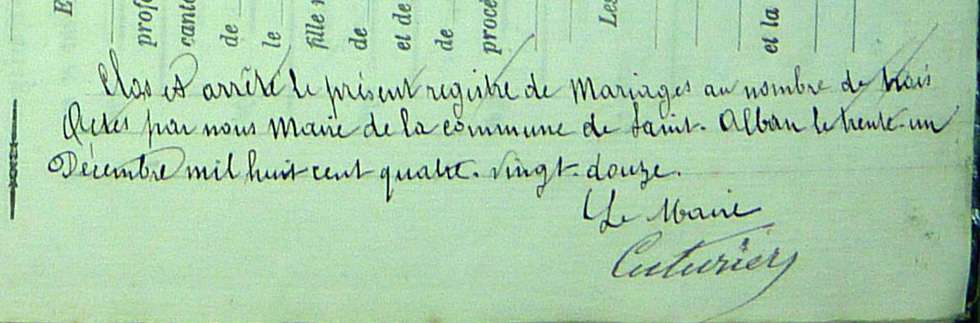 profe
canto
de
le
fille
de
et de
de
procè
Les
et la
Clos et arrêté le présent registre de Mariages au nombre de trois
Actes par nous Maire de la commune de Saint-Alban le trente-un
Décembre mil huit-cent quatre-vingt-douze.
Le Maire
Cuturier